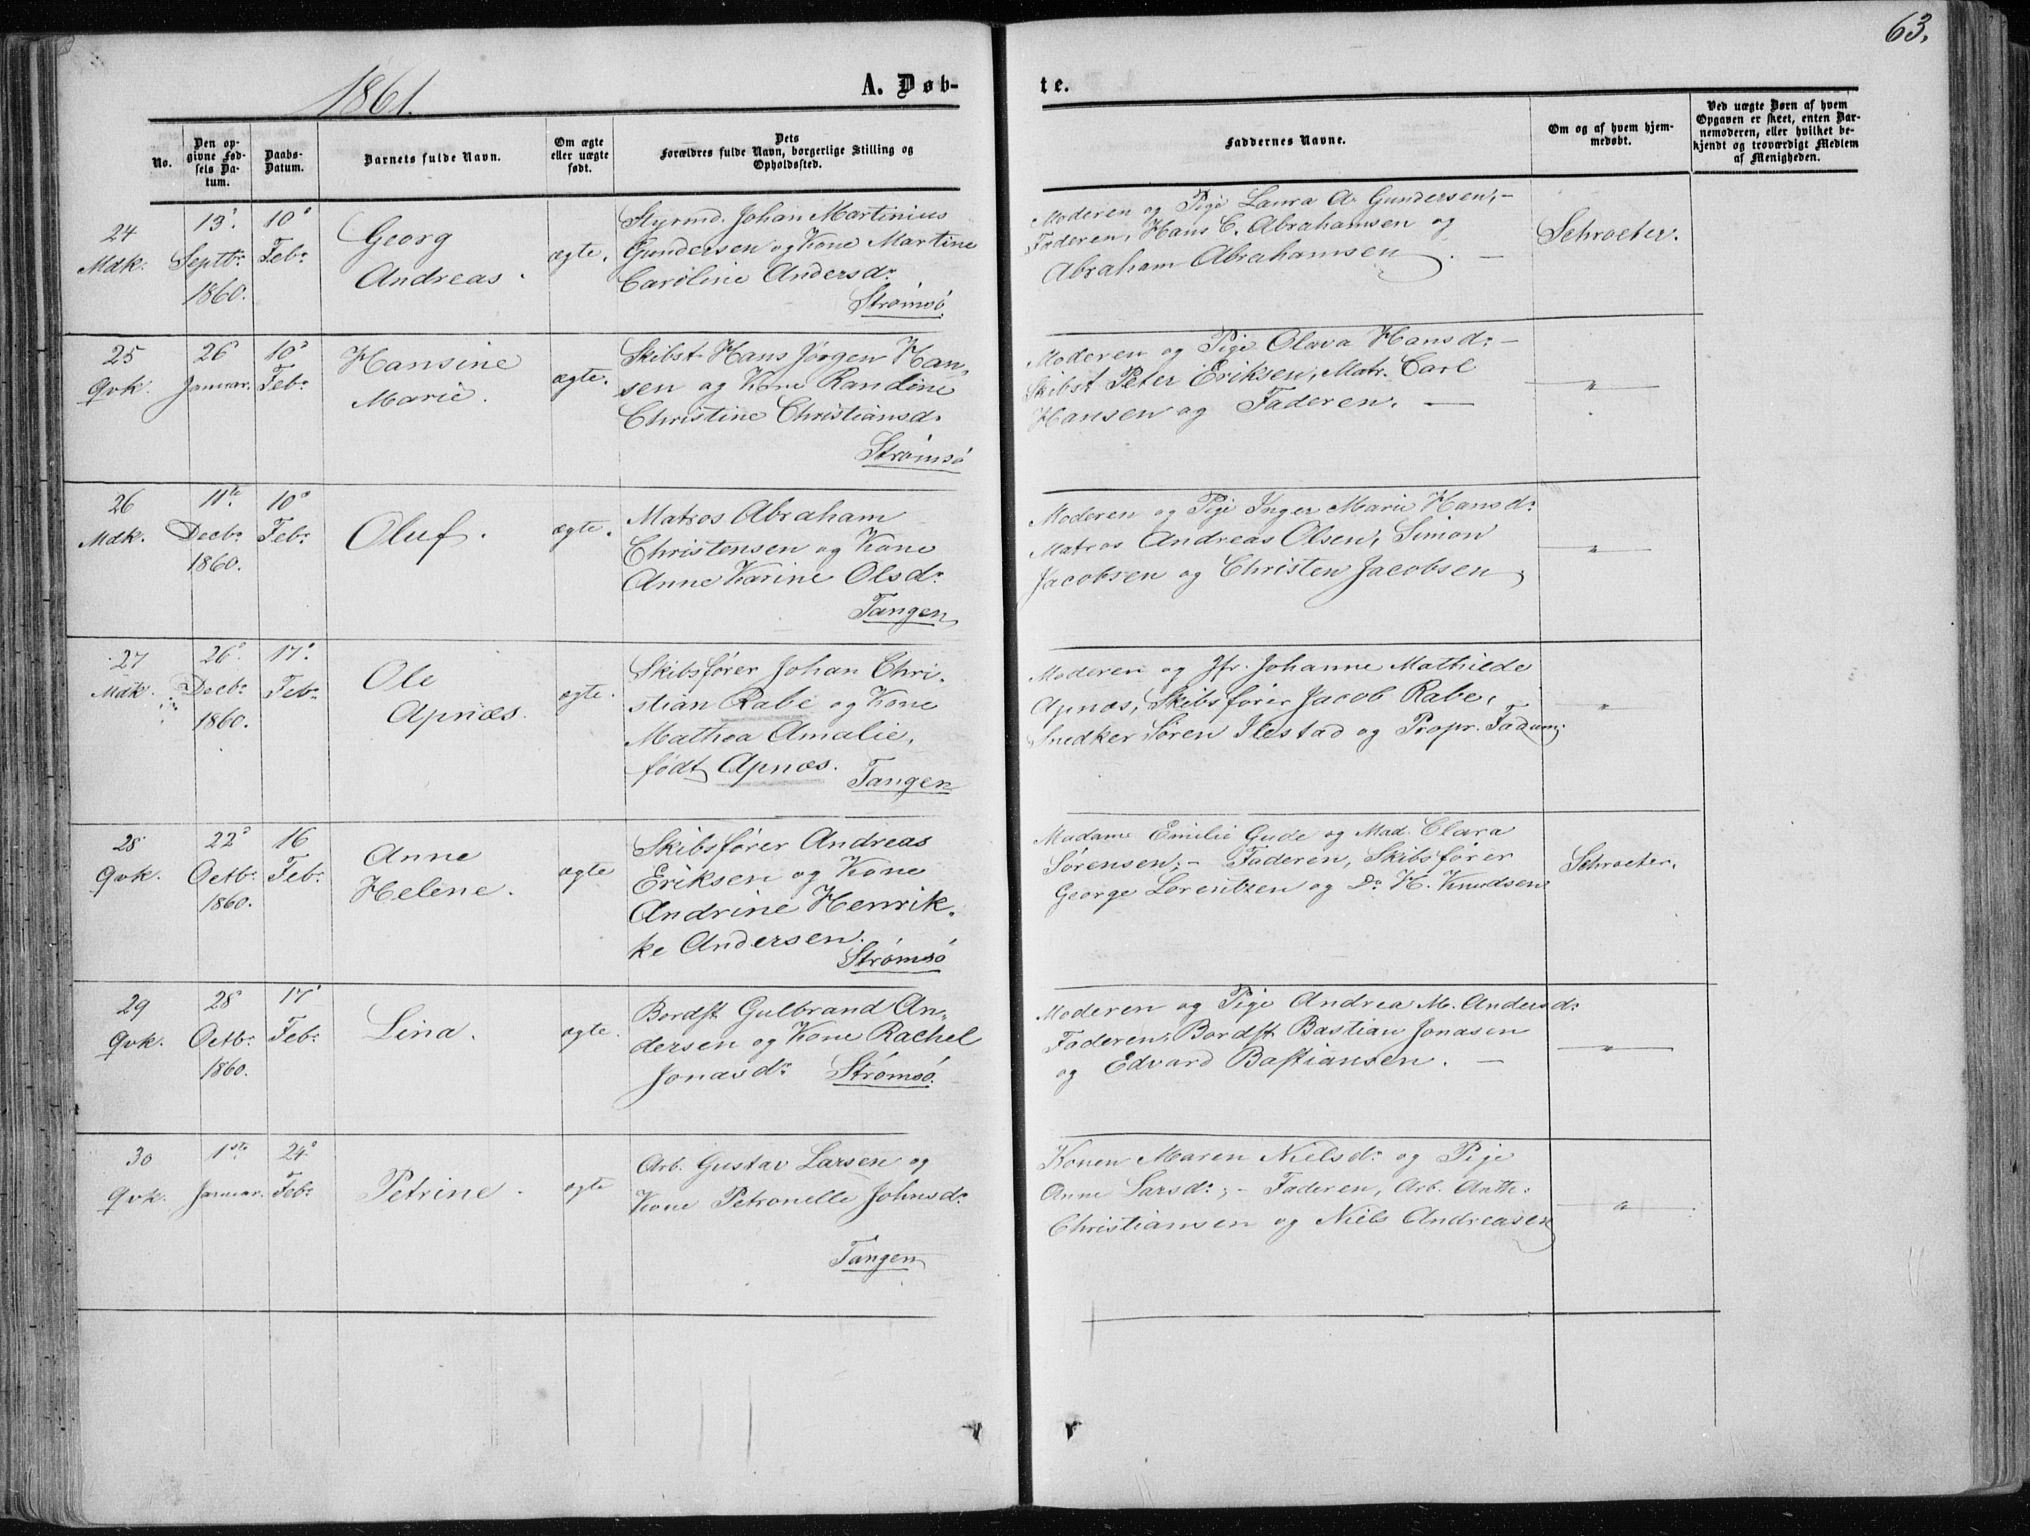 63.
1861.
A. Døb-
te.
No.
Den op-
givne Fød-
sels Da-
tum.
Daabs-
Datum.
Barnets fulde Navn.
Om ægte
eller uægte
født.
Dets
Forældres fulde Navn, borgerlige Stilling og
Opholdssted.
Faddernes Navne.
Om og af hvem hjem-
medøbt.
Ved uægte Børn af hvem
Opgaven er skeet, enten Bar-
nemoderen, eller hvilket be-
kjendt og troværdigt Medlem
af Menigheden.
24
Mdk.
Septbr
1860.
10de
Febr
Georg
Andreas.
ægte.
Styrmd. Johan Martinius
Gundersen og Kone Martine
Caroline Andersdr
Strømsø
Moderen og Pige Laura A. Gundersen,-
Faderen, Hans C. Abrahamsen og
Abraham Abrahamsen. -
Schroeter.
25
Qvk.
26
Januar.
10
Febr
Hansine
Marie.
ægte.
Skibst. Hans Jørgen Han-
sen og Kone Randine
Christine Christiansd.
Strømsø
Moderen og Pige Olava Hansdr -
Skibst Peter Eriksen, Matr. Carl
Hansen og Faderen. -
"
26
Mdk.
11te
Decbr
1860.
10
Febr
Oluf.
ægte.
Matros Abraham
Christensen og Kone
Anne Karine Olsdr
Tangen
Moderen og Pige Inger Marie Hansdr
Matros Andreas Olsen, Simon
Jacobsen og Christen Jacobsen
"
27
Mdk.
26
Decbr
1860.
17
Febr
Ole
Apnæs.
ægte.
Skibsfører Johan Chri-
stian Rabe og Kone
Mathea Amalie,
født Apnæs. Tangen
Moderen og Jfr. Johanne Mathilde
Apnæs, Skibsfører Jacob Rabe,
Snedker Søren Ilestad og Propr. Fadum
"
28
Qvk.
22
Octbr
1860.
16
Febr
Anne
Helene.
ægte
Skibsfører Andreas
Eriksen og Kone
Andrine Henrik-
ke Andersen.
Strømsø
Madame Emilie Gude og Mad. Clara
Sørensen;- Faderen, Skibsfører
George Lorentzen og Do H. Knudsen
Schroeter.
29
Qvk.
28
Octbr
1860.
17
Febr
Lina.
ægte.
Bordst Gulbrand An-
dersen og Kone Rachel
Jonasdr Strømsø.
Moderen og Pige Andrea M. Andersdr
Faderen, Bordst. Bastian Jonasen
og Edvard Bastiansen. -
"
30
Qvk.
1ste
Januar.
24
Febr
Petrine.
ægte
Arb. Gustav Larsen og
Kone Petronelle Johnsdr
Tangen
Konen Maren Nielsdr og Pige
Anne Larsdr;- Faderen, Arb. Anth.
Christiansen og Niels Andreasen
"